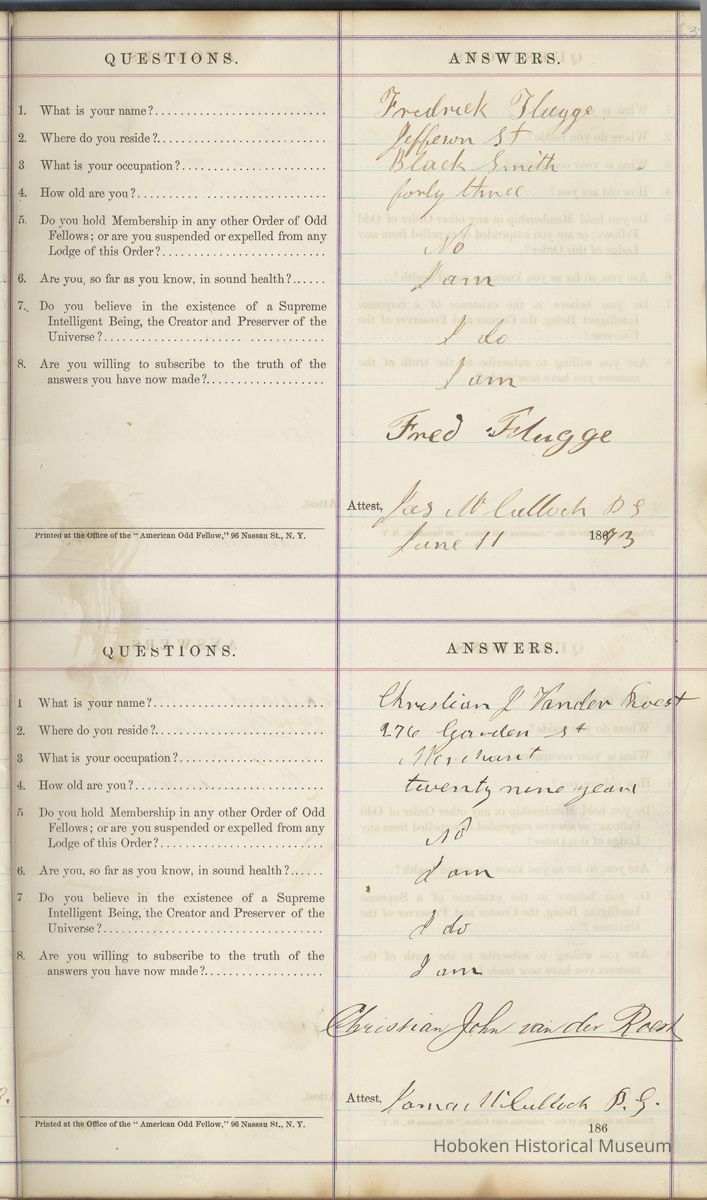 QUESTIONS. ANSWERS.
1. What is your name? Fredrick Flugge
2. Where do you reside? Jefferson St
3 What is your occupation? Black Smith
4. How old are you? forty three
5. Do you hold Membership in any other Order of Odd
Fellows; or are you suspended or expelled from any
Lodge of this Order? No
6. Are you, so far as you know, in sound health? I am
7. Do you believe in the existence of a Supreme
Intelligent Being, the Creator and Preserver of the
Universe? I do
8. Are you willing to subscribe to the truth of the
answers you have now made? I am
Fred Flugge
Attest, Jas McCulloch P G
Printed at the Office of the "American Odd Fellow," 96 Nassau St., N. Y.
June 11 1873
QUESTIONS. ANSWERS.
1 What is your name? Christian J Vander Roest
2. Where do you reside? 276 Garden St
3 What is your occupation? Merchant
4. How old are you? twenty nine years
5 Do you hold Membership in any other Order of Odd
Fellows; or are you suspended or expelled from any
Lodge of this Order? No
6. Are you, so far as you know, in sound health? I am
7 Do you believe in the existence of a Supreme
Intelligent Being, the Creator and Preserver of the
Universe? I do
8. Are you willing to subscribe to the truth of the
answers you have now made? I am
Christian John van der Roest
Attest, James McCulloch P. G.
Printed at the Office of the "American Odd Fellow," 96 Nassau St., N. Y.
186
Hoboken Historical Museum